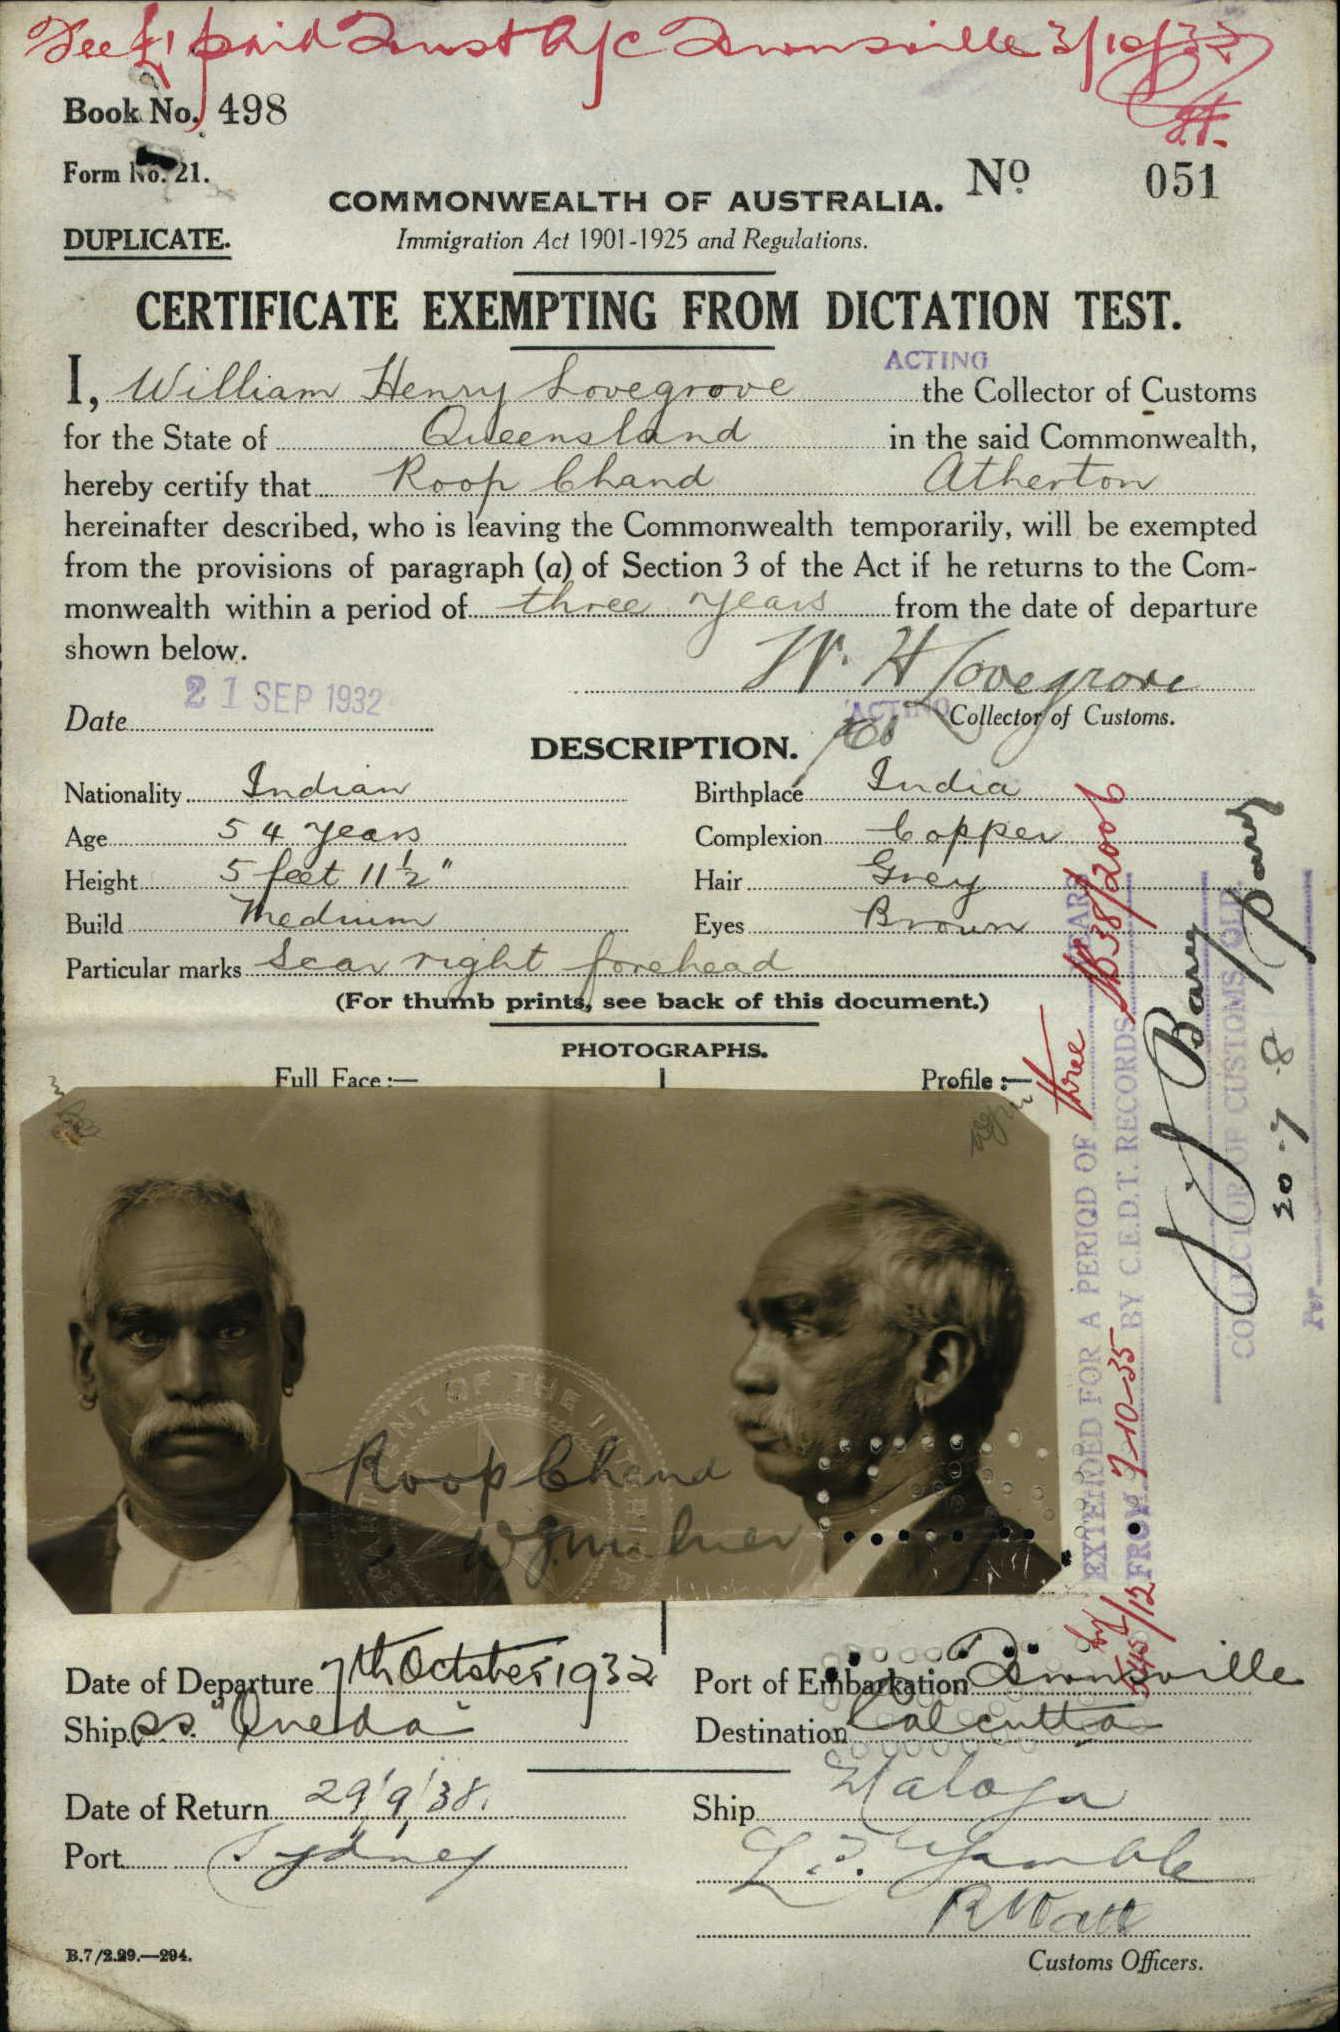 Fee £1 paid Trust A/C Townsville 3/10/32
Book No. 498
Form No. 21.
Nº 051
COMMONWEALTH OF AUSTRALIA.
DUPLICATE.
Immigration Act 1901-1925 and Regulations.
CERTIFICATE EXEMPTING FROM DICTATION TEST.
ACTING
I, William Henry Lovegrove the Collector of Customs
for the State of Queensland in the said Commonwealth,
hereby certify that Roop Chand Atherton
hereinafter described, who is leaving the Commonwealth temporarily, will be exempted
from the provisions of paragraph (a) of Section 3 of the Act if he returns to the Com-
monwealth within a period of three years from the date of departure
shown below.
W. H Lovegrove
Date 21 SEP 1932
ACTING Collector of Customs.
DESCRIPTION.
Nationality Indian Birthplace India
Age 54 years Complexion Copper
Height 5 feet 11½" Hair Grey
Build Medium Eyes Brown
Particular marks Scar right forehead
(For thumb prints, see back of this document.)
PHOTOGRAPHS.
Full Face :— Profile :—
Roop Chand
EXTENDED FOR A PERIOD OF three YEARS
FROM 7-10-35 BY C.E.D.T. RECORDS 38/2006
J J Barry
COLLECTOR OF CUSTOMS QLD.
Per Parry
20-7-8
Date of Departure 7th October 1932 Port of Embarkation Townsville
Ship s.s. "Oneda" Destination Calcutta
Date of Return 29/9/38. Ship Naloja
Port Sydney
Gamble
R Watt
B.7/2.29.—294.
Customs Officers.